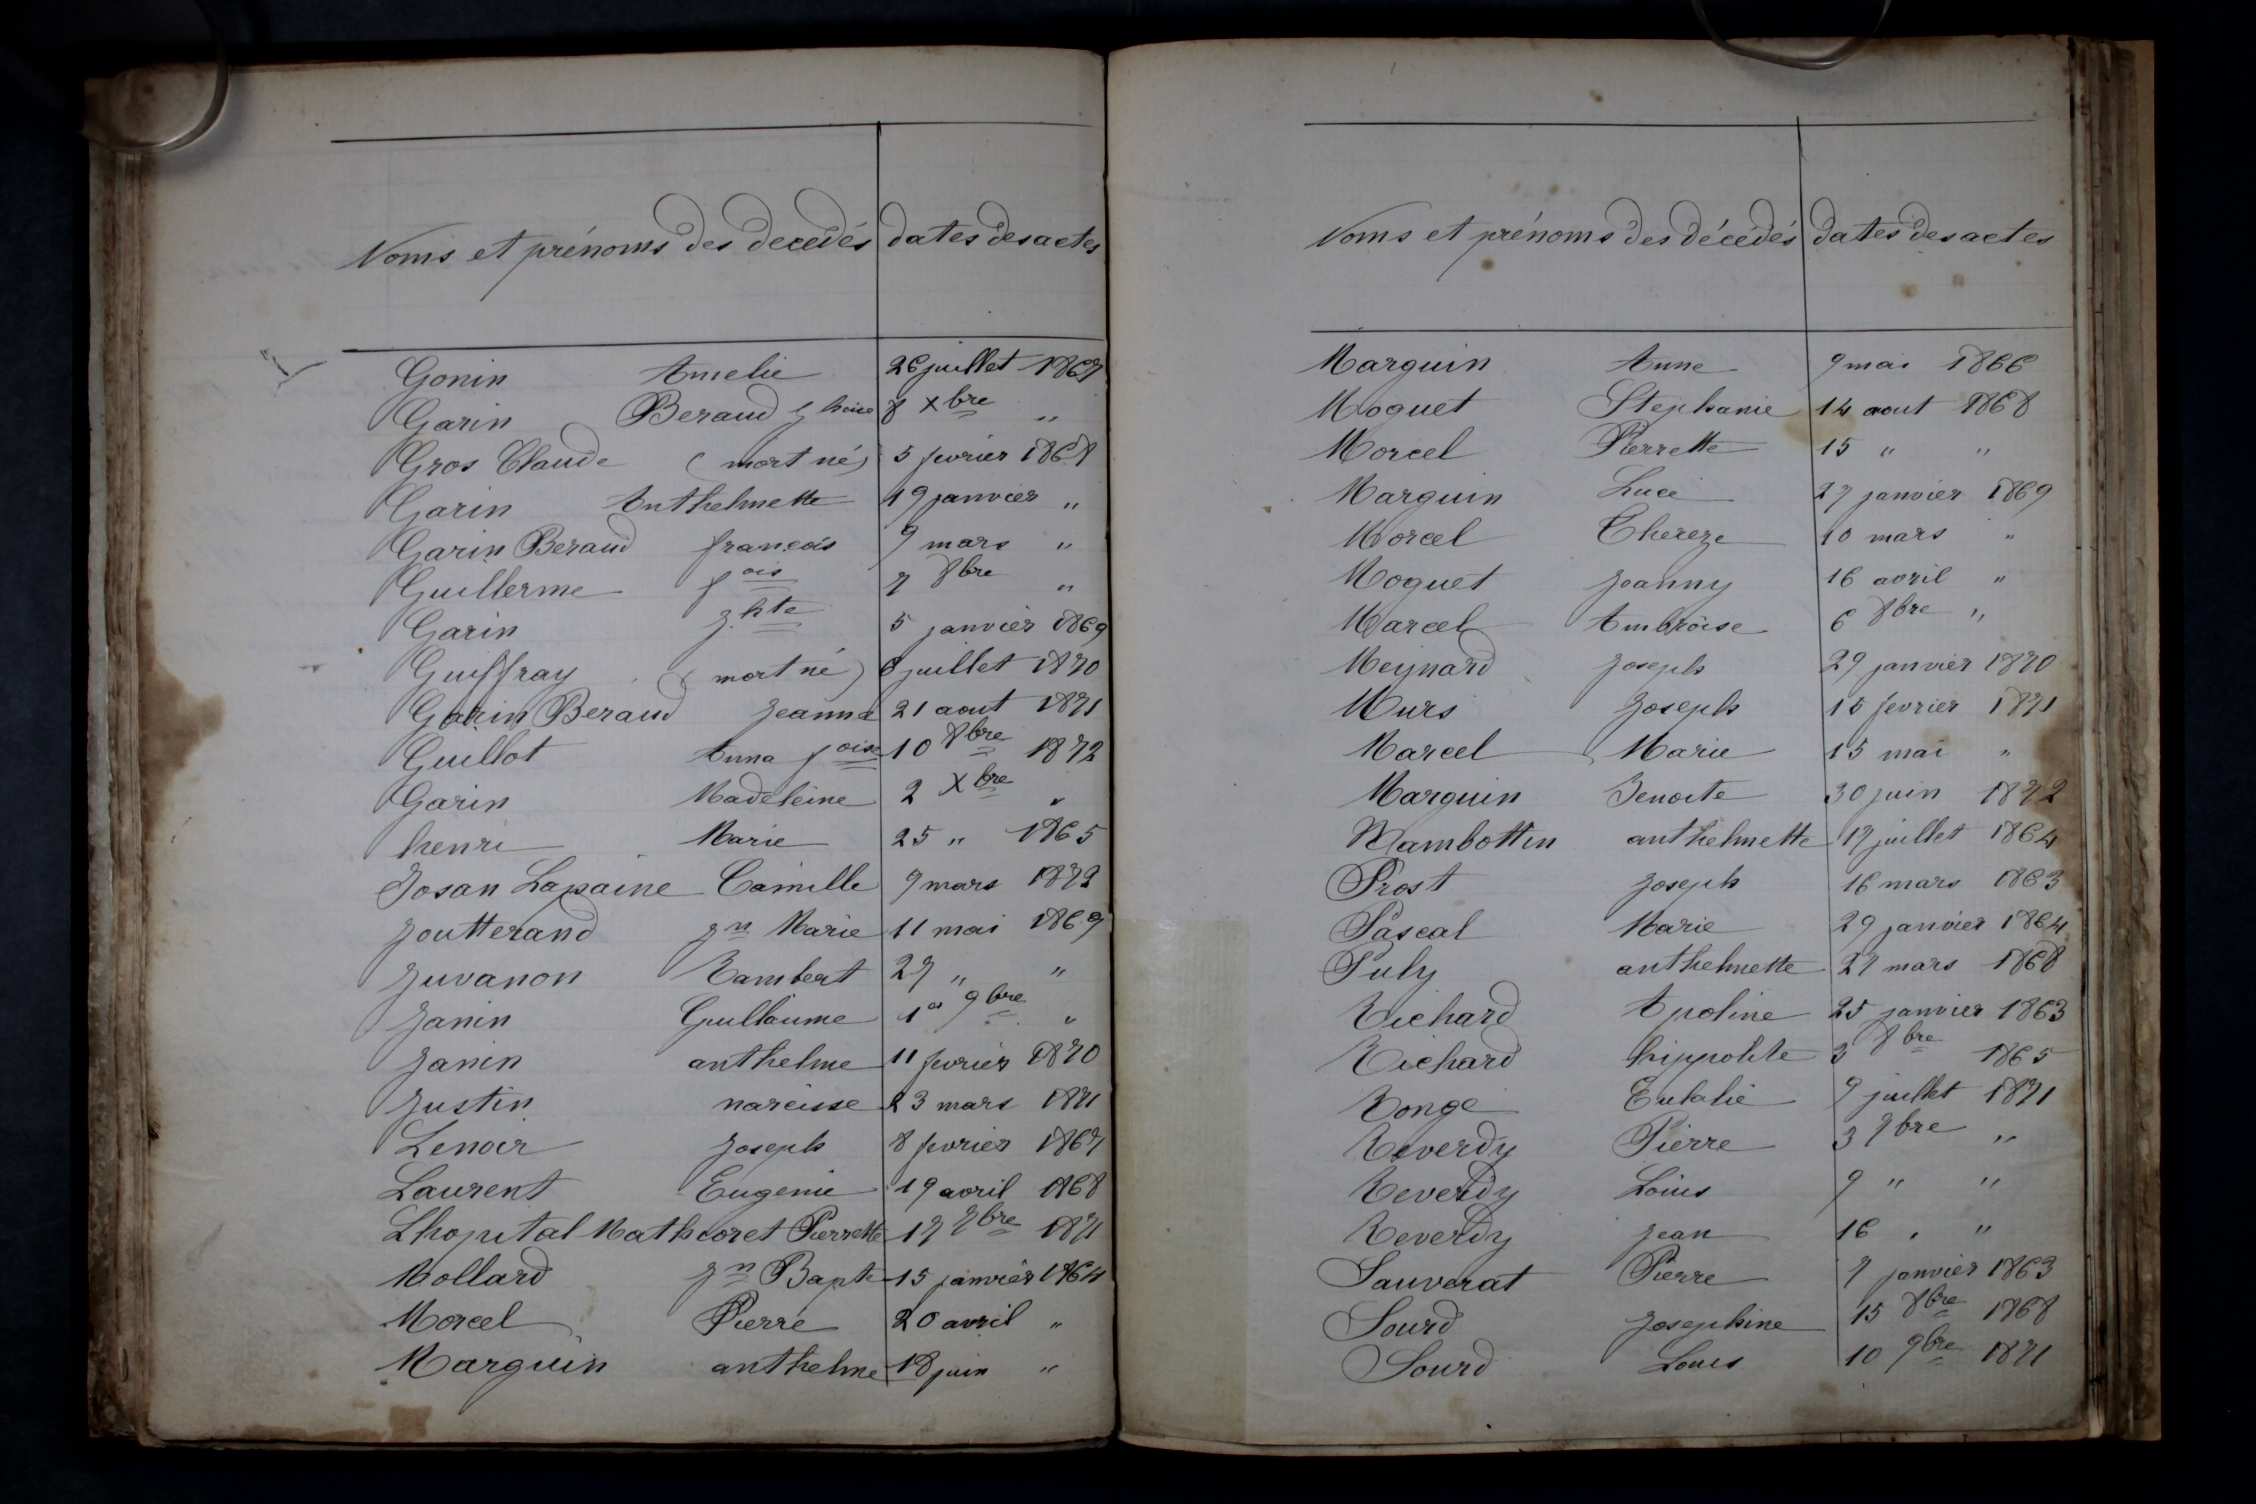 Noms et prénoms des decedés dates des actes
Gonin Amelie 26 juillet 1867
Garin Beraud 8 Xbre "
Gros Claude (mort né) 5 fevrier 1868
Garin Anthelmette 19 janvier "
Garin Beraud francois 9 mars "
Guillerme fois 7 8bre "
Garin jhte 5 janvier 1869
Guiffray (mort né) 6 juillet 1870
Garin Beraud Jeanne 21 aout 1871
Guillot Anna foise 10 8bre 1872
Garin Madeleine 2 Xbre "
henri Marie 25 " 1865
Josan Lapaine Camille 9 mars 1872
Joutterand Jn Marie 11 mai 1869
Juvanon Rambert 27 " "
Janin Guillaume 1er 9bre "
Janin anthelme 11 fevrier 1870
Justin narcisse 23 mars 1871
Lenoir Joseph 8 fevrier 1867
Laurent Eugenie 19 avril 1868
Lhopital Mathieoret Pierrette 17 7bre 1871
Mollard Jn Bapte 15 janvier 1864
Morcel Pierre 20 avril "
Marguin anthelme 18 juin "
Noms et prénoms des décédés dates des actes
Marguin Anne 9 mai 1866
Moquet Stephanie 14 aout 1868
Morcel Pierrette 15 " "
Marguin Luce 27 janvier 1869
Morcel Thereze 10 mars "
Moquet Joanny 16 avril "
Marcel Ambroise 6 8bre "
Meynard Joseph 29 janvier 1870
Murs Joseph 15 fevrier 1871
Marcel Marie 15 mai "
Marguin Benoite 30 juin 1872
Nambottin anthelmette 17 juillet 1864
Prost Joseph 16 mars 1863
Pascal Marie 29 janvier 1864
Puly anthelmette 27 mars 1868
Richard Apoline 25 janvier 1863
Richard hippolite 3 8bre 1865
Ronge Eulalie 9 juillet 1871
Reverdy Pierre 3 7bre "
Reverdy Louis 9 " "
Reverdy Jean 16 " "
Sauverat Pierre 7 janvier 1863
Sourd Josephine 15 8bre 1868
Sourd Louis 10 9bre 1871